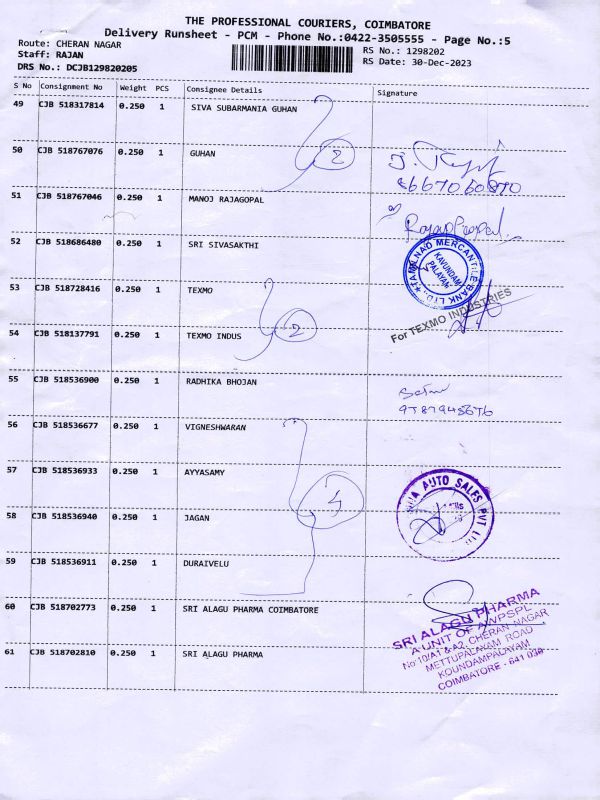 THE PROFESSIONAL COURIERS, COIMBATORE
Delivery Runsheet - PCM - Phone No.:0422-3505555 - Page No.:5
Route: CHERAN NAGAR
RS No.: 1298202
Staff: RAJAN
RS Date: 30-Dec-2023
DRS No.: DCJB129820205
S No Consignment No Weight PCS Consignee Details Signature
49 CJB 518317814 0.250 1 SIVA SUBARMANIA GUHAN
50 CJB 518767076 0.250 1 GUHAN 2
8667060870
51 CJB 518767046 0.250 1 MANOJ RAJAGOPAL
Rajagopal
52 CJB 518686480 0.250 1 SRI SIVASAKTHI
TAMILNAD MERCANTILE BANK LTD.
KAVUNDAM
PALAYAM
53 CJB 518728416 0.250 1 TEXMO
For TEXMO INDUSTRIES
54 CJB 518137791 0.250 1 TEXMO INDUS 2
55 CJB 518536900 0.250 1 RADHIKA BHOJAN
56 CJB 518536677 0.250 1 VIGNESHWARAN
57 CJB 518536933 0.250 1 AYYASAMY 4
AUTO SALES PVT LTD
58 CJB 518536940 0.250 1 JAGAN
59 CJB 518536911 0.250 1 DURAIVELU
60 CJB 518702773 0.250 1 SRI ALAGU PHARMA COIMBATORE
61 CJB 518702810 0.250 1 SRI ALAGU PHARMA
SRI ALAGU PHARMA
A UNIT OF AWPSPL
No:10/A1 &A2, CHERAN NAGAR
METTUPALAYAM ROAD
KOUNDAMPALAYAM
COIMBATORE - 641 030